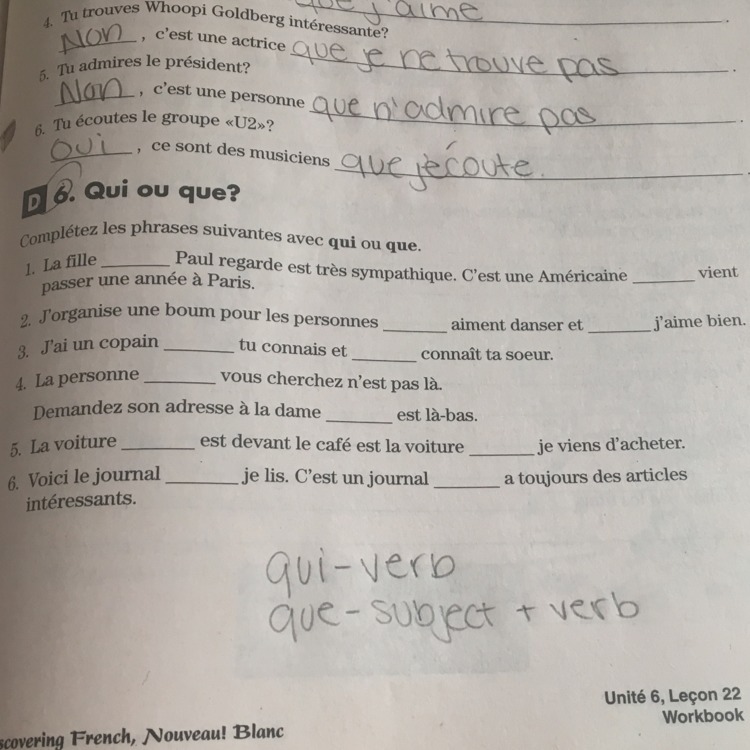 que j'aime.
4. Tu trouves Whoopi Goldberg intéressante?
Non, c'est une actrice que je ne trouve pas.
5. Tu admires le président?
Non, c'est une personne que n'admire pas.
6. Tu écoutes le groupe «U2»?
Oui, ce sont des musiciens que j'écoute.
D 6. Qui ou que?
Complétez les phrases suivantes avec qui ou que.
1. La fille ________ Paul regarde est très sympathique. C'est une Américaine ________ vient
passer une année à Paris.
2. J'organise une boum pour les personnes ________ aiment danser et ________ j'aime bien.
3. J'ai un copain ________ tu connais et ________ connaît ta soeur.
4. La personne ________ vous cherchez n'est pas là.
Demandez son adresse à la dame ________ est là-bas.
5. La voiture ________ est devant le café est la voiture ________ je viens d'acheter.
6. Voici le journal ________ je lis. C'est un journal ________ a toujours des articles
intéressants.
qui - verb
que - subject + verb
Unité 6, Leçon 22
Workbook
scovering French, Nouveau! Blanc